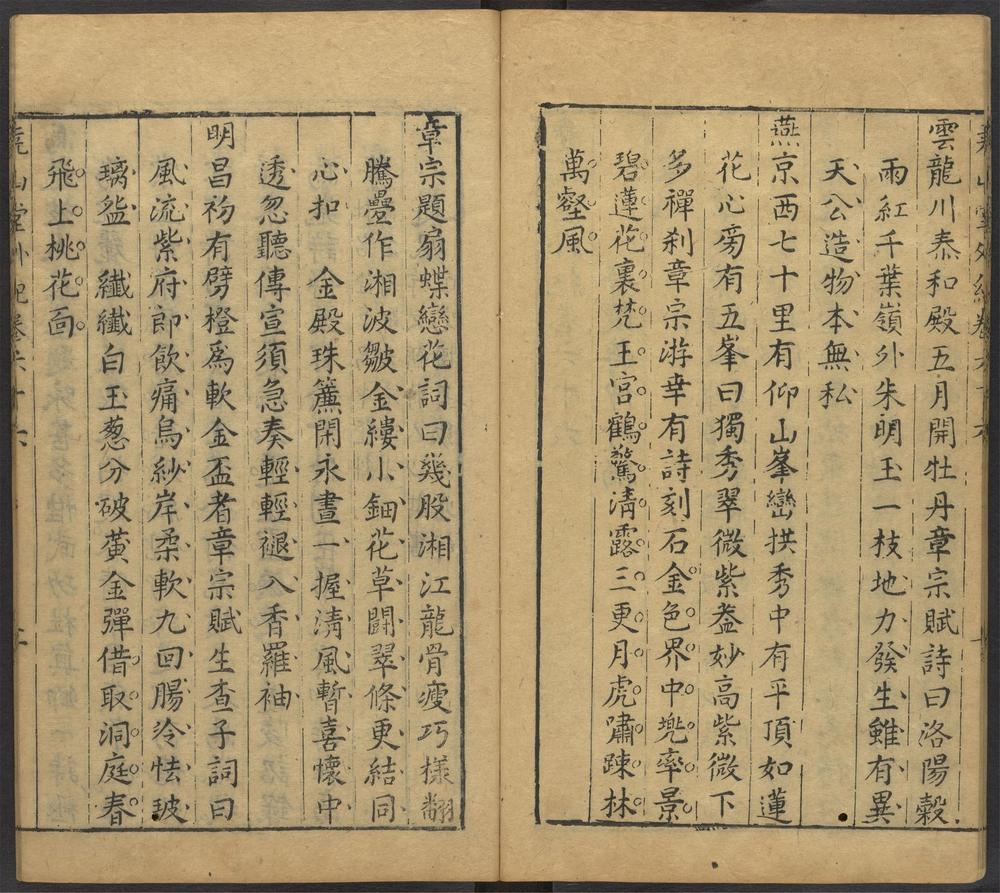 雲龍川泰和殿五月開牡丹章宗賦詩曰洛陽穀
雨紅千葉嶺外朱明玉一枝地力發生雖有異
天公造物本無私
燕京西七十里有仰山峯巒拱秀中有平頂如蓮
花心旁有五峯曰獨秀翠微紫盖妙高紫微下
多禪刹章宗游幸有詩刻石金色界中兠率景
碧蓮花裏梵王宮鶴驚清露三更月虎嘯踈林
萬壑風
章宗題扇蝶戀花詞曰幾股湘江龍骨瘦巧樣翻
騰疊作湘波皺金縷小鈿花草鬪翠條更結同
心扣 金殿珠簾閑永晝一握清風暫喜懷中
透忽聽傳宣須急奏輕輕褪入香羅袖
明昌礽有劈橙爲軟金盃者章宗賦生查子詞曰
風流紫府郎飲痛烏紗岸柔軟九回腸冷怯玻
璃盌 纖纖白玉葱分破黃金彈借取洞庭春
飛上桃花面
堯山堂外紀卷六十六